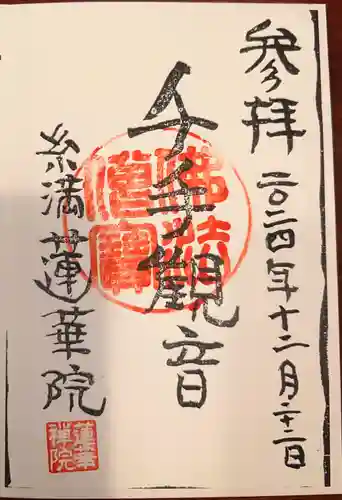 参拝
二〇二四年十二月二十二日
千手觀音
糸満蓮華院
蓮華禅院